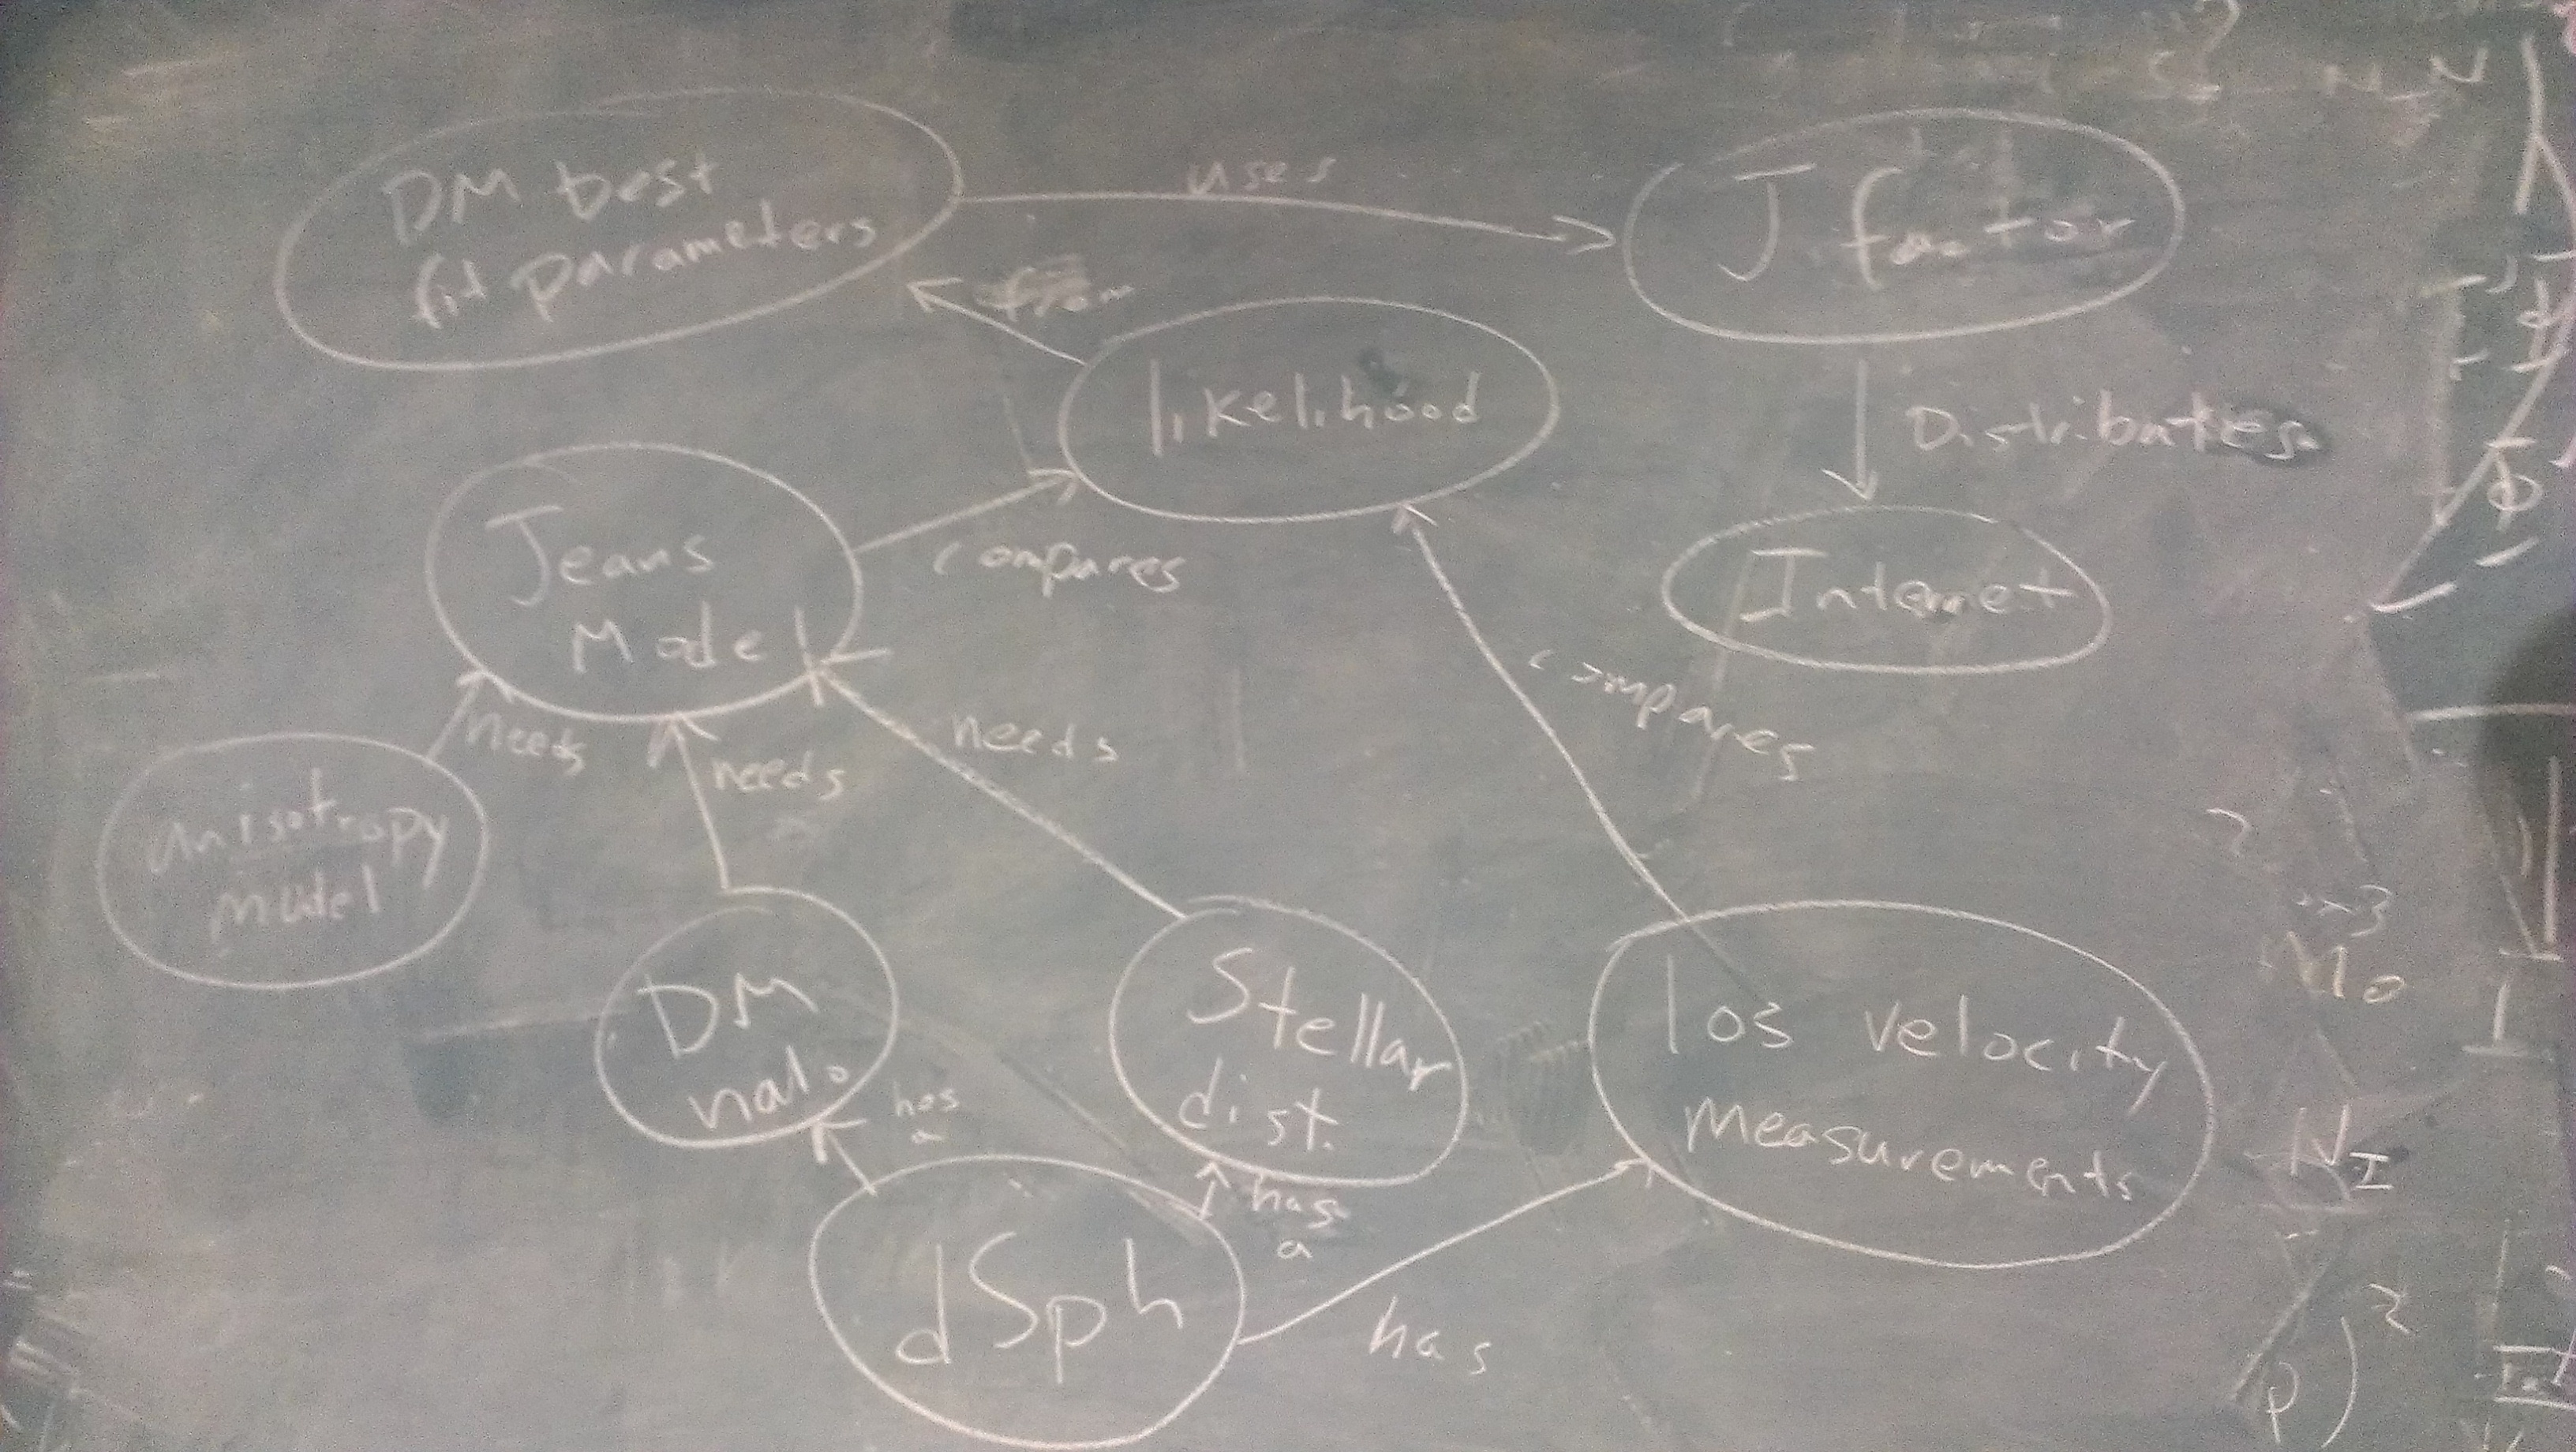 DM best
fit parameters
uses
J factor
from
likelihood
Distributes
Jeans
Model
compares
Internet
compares
needs
needs
needs
anisotropy
model
DM
halo
has
a
Stellar
dist.
los velocity
measurements
has
a
dSph
has
N_I